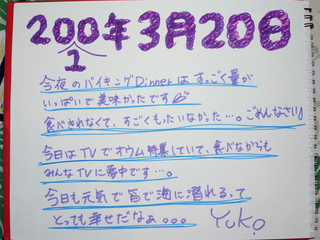 200年3月20日
1
今夜のバイキングDinnerはすっごく量が
いっぱいで美味かったです
食べきれなくて、すごくもったいなかった…。ごめんなさい!
今日はTVでオウム特集していて、食べながらも
みんなTVに夢中です…。
今日も元気で皆で海に潜れるって
とっても幸せだなぁ。。。
Yuko